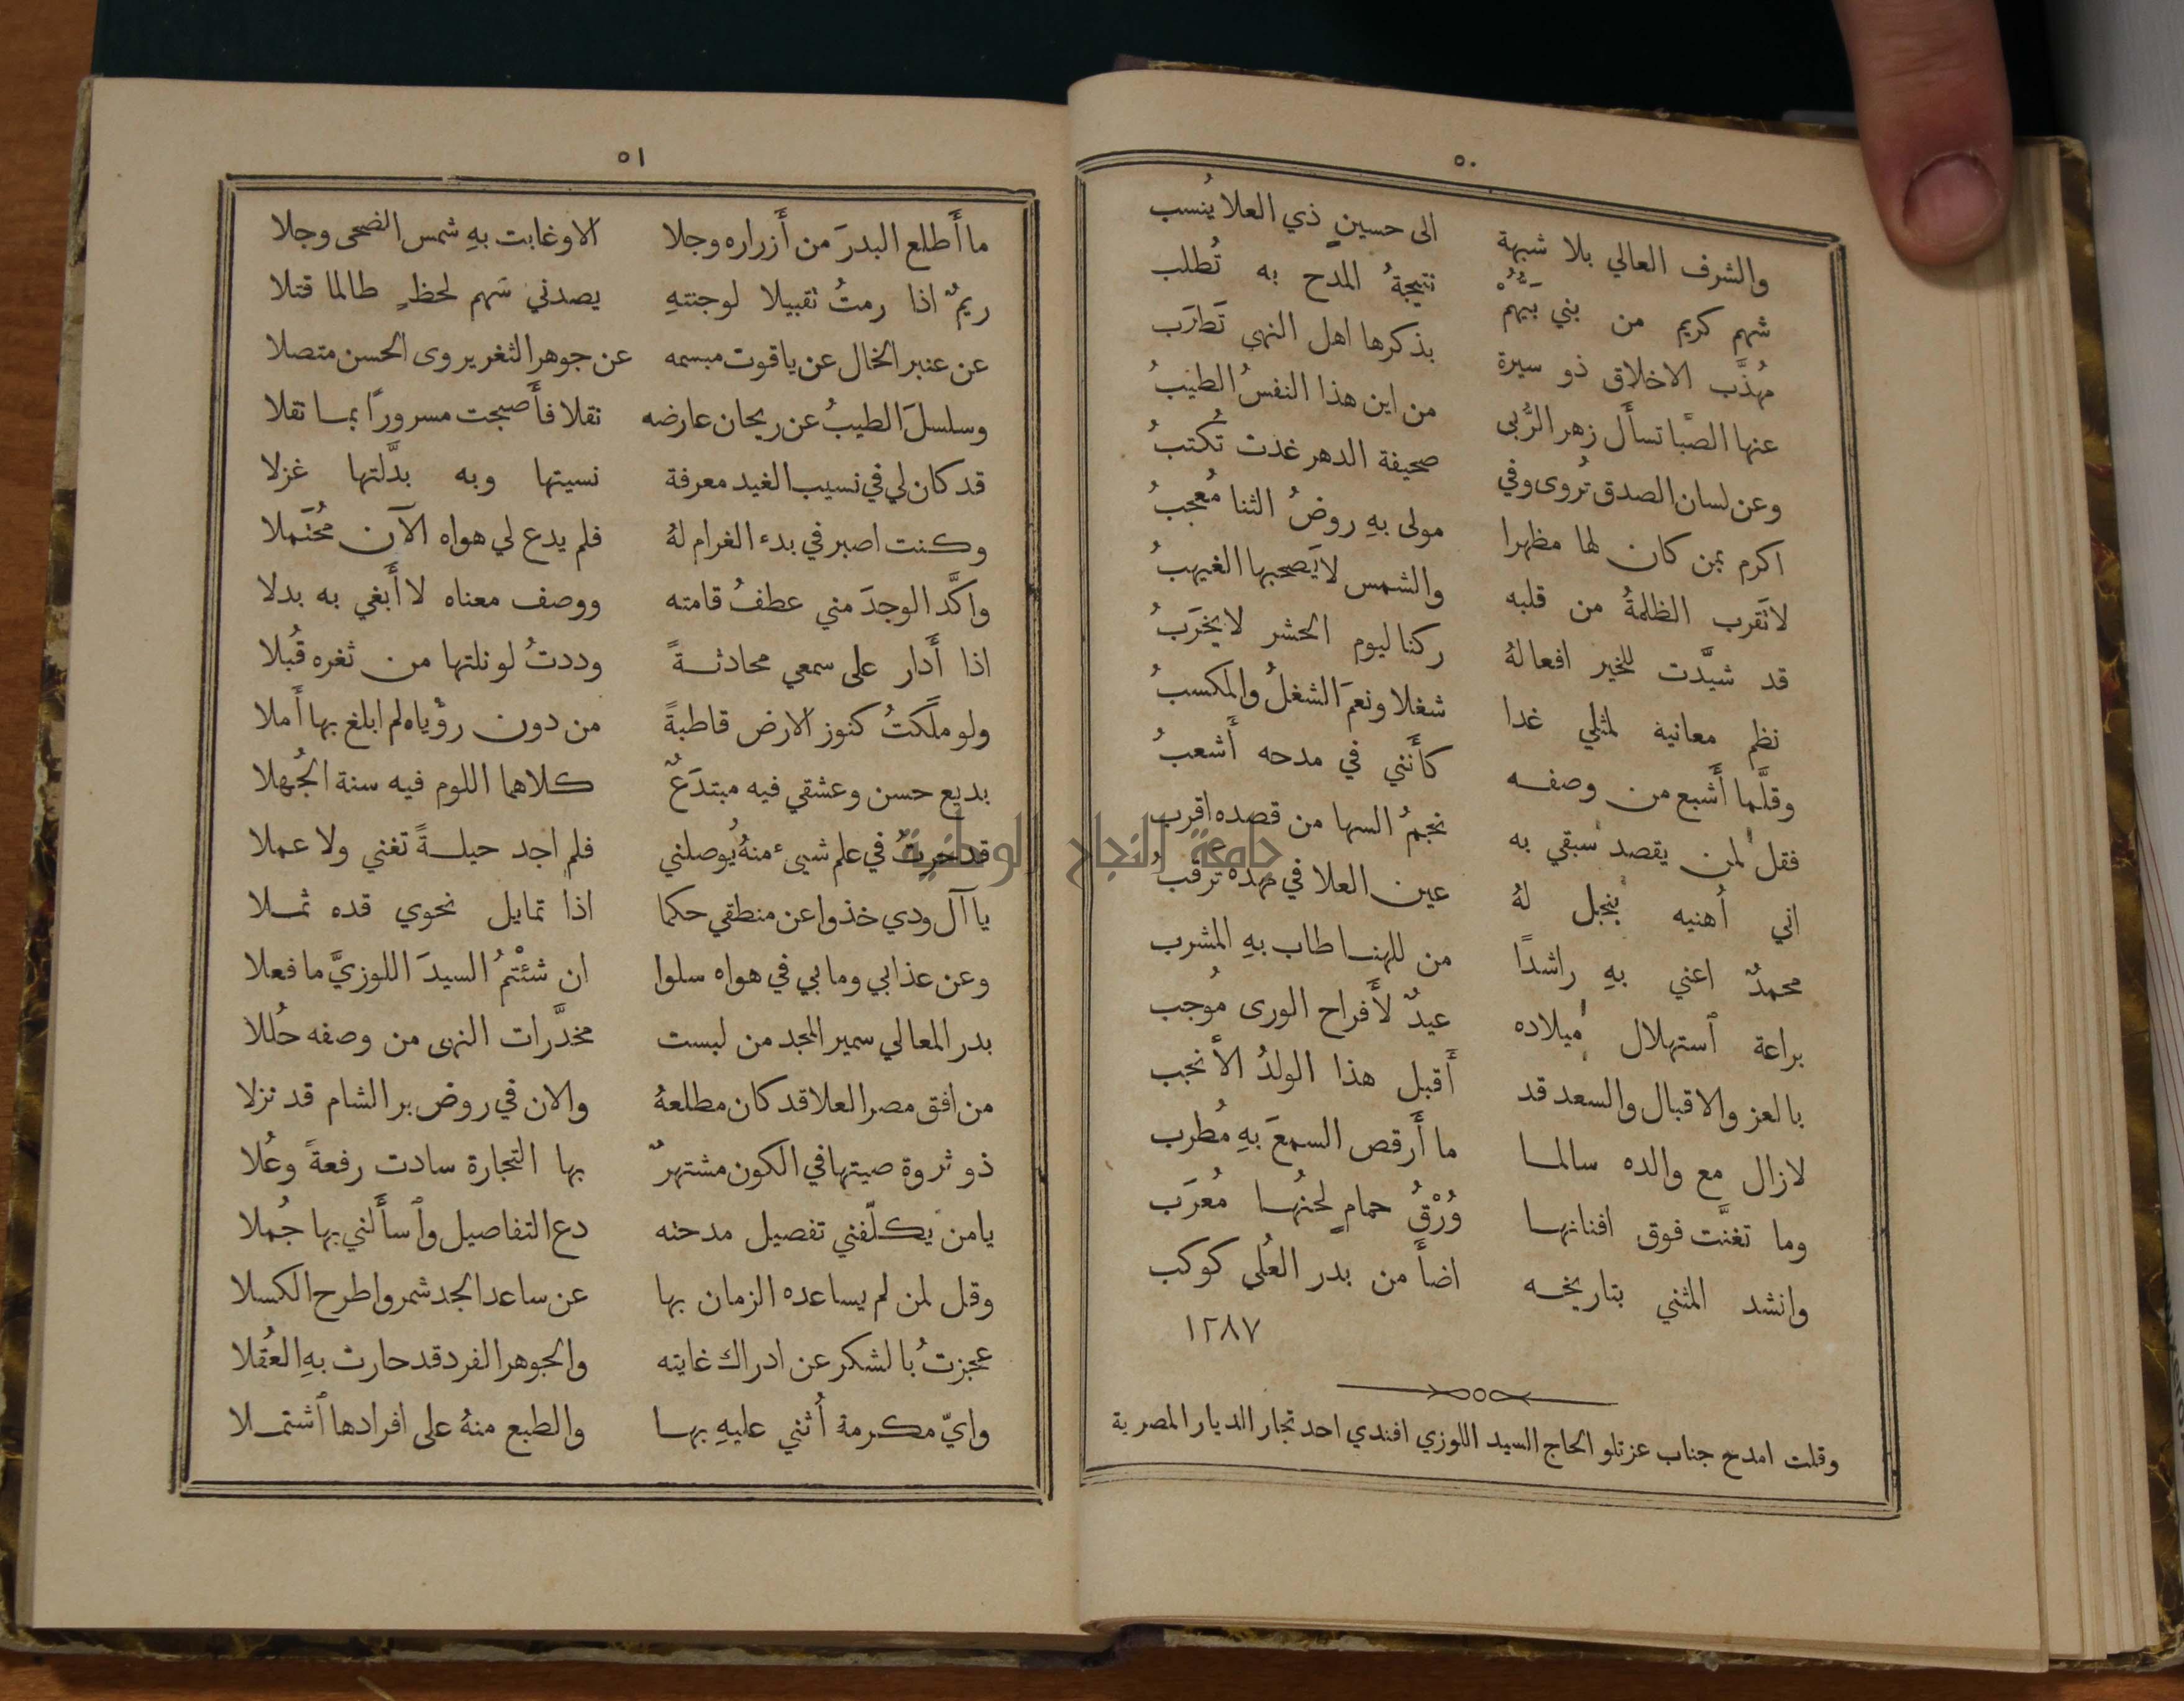 ٥٠
والشرف العالي بلا شبهة الى حسينٍ ذي العلا يُنسب
شهم كريم من بني بَيهُمْ نتيجةُ المدح به تُطلب
مُهذَّب الاخلاق ذو سيرة بذكرها اهل النهى تَطرَب
عنها الصَّبا تسأَل زهر الرُّبى من اين هذا النفسُ الطيبُ
وعن لسان الصدق تُروى وفي صحيفة الدهر غدت تُكتبُ
اكرم بمن كان لها مظهرا مولى بهِ روضُ الثنا مُعجبُ
لا تَقرب الظلمةُ من قلبه والشمس لا يَصحبها الغيهبُ
قد شيَّدت للخير افعالهُ ركنا ليوم الحشر لا يخرَبُ
نظم معانيه لمثلي غدا شغلا ونعمَ الشغلُ والمكسبُ
وقلَّما أَشبع من وصفه كأَنني في مدحه أَشعبُ
فقل لمن يقصد سبقي به نجمُ السها من قصده اقرب
اني أُهنيه بنجل لهُ عين العلا في مهده ترقبُ
محمدٌ اعني بهِ راشدًا من للهنا طاب بهِ المشرب
براعة ٱستهلال ميلاده عيدٌ لأَفراح الورى مُوجب
بالعز والاقبال والسعد قد أَقبل هذا الولدُ الأَنجب
لا زال مع والده سالما ما أَرقص السمعَ بهِ مُطرب
وما تغنَّت فوق افنانها وُرْقُ حمامٍ لحنُها مُعرَب
وانشد المثني بتاريخه اضأَ من بدر العُلى كوكب
١٢٨٧
وقلت امدح جناب عزتلو الحاج السيد اللوزي افندي احد تجار الديار المصرية
٥١
ما أَطلع البدرَ من أَزراره وجلا الا وغابت بهِ شمس الضحى وجلا
ريمٌ اذا رمتُ تقبيلا لوجنتهِ يصدني سَهم لحظٍ طالما قتلا
عن عنبر الخال عن ياقوت مبسمه عن جوهر الثغر يروى الحسن متصلا
وسلسلَ الطيبُ عن ريحان عارضه نقلا فأَصبحت مسرورًا بما نقلا
قد كان لي في نسيب الغيد معرفة نسيتها وبه بدَّلتها غزلا
وكنت اصبر في بدء الغرام لهُ فلم يدع لي هواه الآن مُحْتَملا
واكَّد الوجدَ مني عطفُ قامته ووصف معناه لا أَبغي به بدلا
اذا أَدار على سمعي محادثةً وددتُ لو نلتها من ثغره قُبلا
ولو ملَكتُ كنوز الارض قاطبةً من دون رؤياه لم ابلغ بها أَملا
بديع حسن وعشقي فيه مبتدَعٌ كلاهما اللوم فيه سنة الجُهلا
قد حرتُ في علم شيىء منهُ يُوصلني فلم اجد حيلةً تغني ولا عملا
يا آل ودي خذوا عن منطقي حكما اذا تمايل نحوي قده ثملا
وعن عذابي وما بي في هواه سلوا ان شئْتمُ السيدَ اللوزيَّ ما فعلا
بدر المعالي سمير المجد من لبست مخدَّرات النهى من وصفه حُللا
من افق مصر العلا قد كان مطلعهُ والان في روض بر الشام قد نزلا
ذو ثروة صيتها في الكون مشتهرٌ بها التجارة سادت رفعةً وعُلا
يا من يكلّفني تفصيل مدحته دع التفاصيل وٱسأَلني بها جُملا
وقل لمن لم يساعده الزمان بها عن ساعد الجد شمر واطرح الكسلا
عجزتُ بالشكر عن ادراك غايته والجوهر الفرد قد حارت بهِ العُقلا
وايّ مكرمة أُثني عليهِ بها والطبع منهُ على افرادها ٱشتملا
جامعة النجاح الوطنية